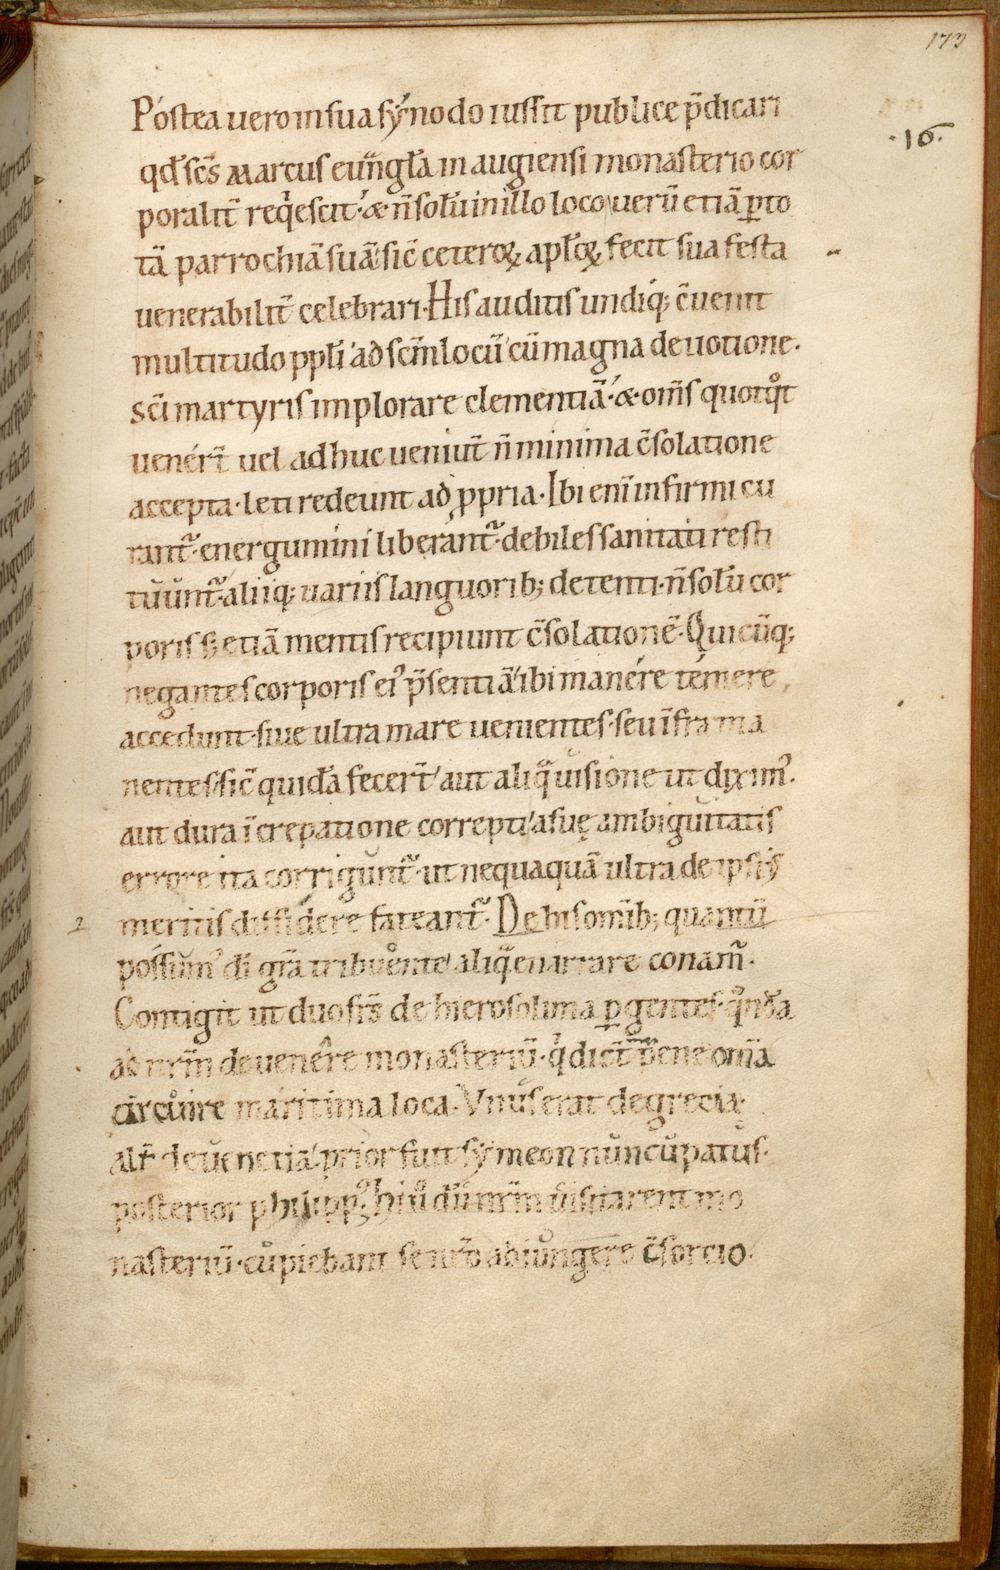 173
·16·
Postea uero in sua sẏnodo iussit publice p̄dicari
qđ sc̄s Marcus euṅgl̄a in augiensi monasterio cor
poralit̄ req̇escit· & n̄ solū in illo loco uerū etiā ꝑ to
tā parrochiā suā sic̄ ceteroꝝ apl̄oꝝ fecit sua festa
uenerabilit̄ celebrari· His auditis undiq; c̄uenit
multitudo ppl̄i ad scm̄ locū cū magna deuotione·
sci martyris implorare clementiā· & om̄s quotq̊t
uenér̄t uel adhuc ueniut̄ n̄ minima c̄solatione
accepta· leti redeunt ad ꝓpria· Ibi eni infirmi cu
rant᷑· energumini liberant᷑· debiles sanitati resti
tuunt᷑· aliiq; uariis languorib; detenti· n̄ solū cor
poris s; etiā mentis recipiunt c̄solationē· Quicūq;
negantes corporis ei᷒ p̄sentiā ibi manére témere
accedunt· siue ultra mare uenientes· seu īfra ma
nentes· sic̄ quidā fecer̄t aut aliq̄ uisione ut dixim᷒·
aut dura īcrepatione correpti a suę ambiguitatis
errore ita corrigunt᷑· ut nequaquā ultra de ipsis
2 meritis diffidere fateant᷑· De his omīb; quantū
possum᷒ di gr̄a tribuente aliq̄ enarrare conam᷑·
Contigit ut duo fr̄s de hierosolima ꝑgentes· q̊ndā
ad nr̄m deuenere monasteriū· q̇ dict̄ pene om̄a
circuire maritima loca· Vnus erat de grecia·
alt̄ de uenetia· prior fuit sẏmeon nuncupatus·
posterior philipp᷒· hi ů dū nr̄m uisitarent mo
nasteriū· cupiebant se nr̄o adiungere c̄sorcio·